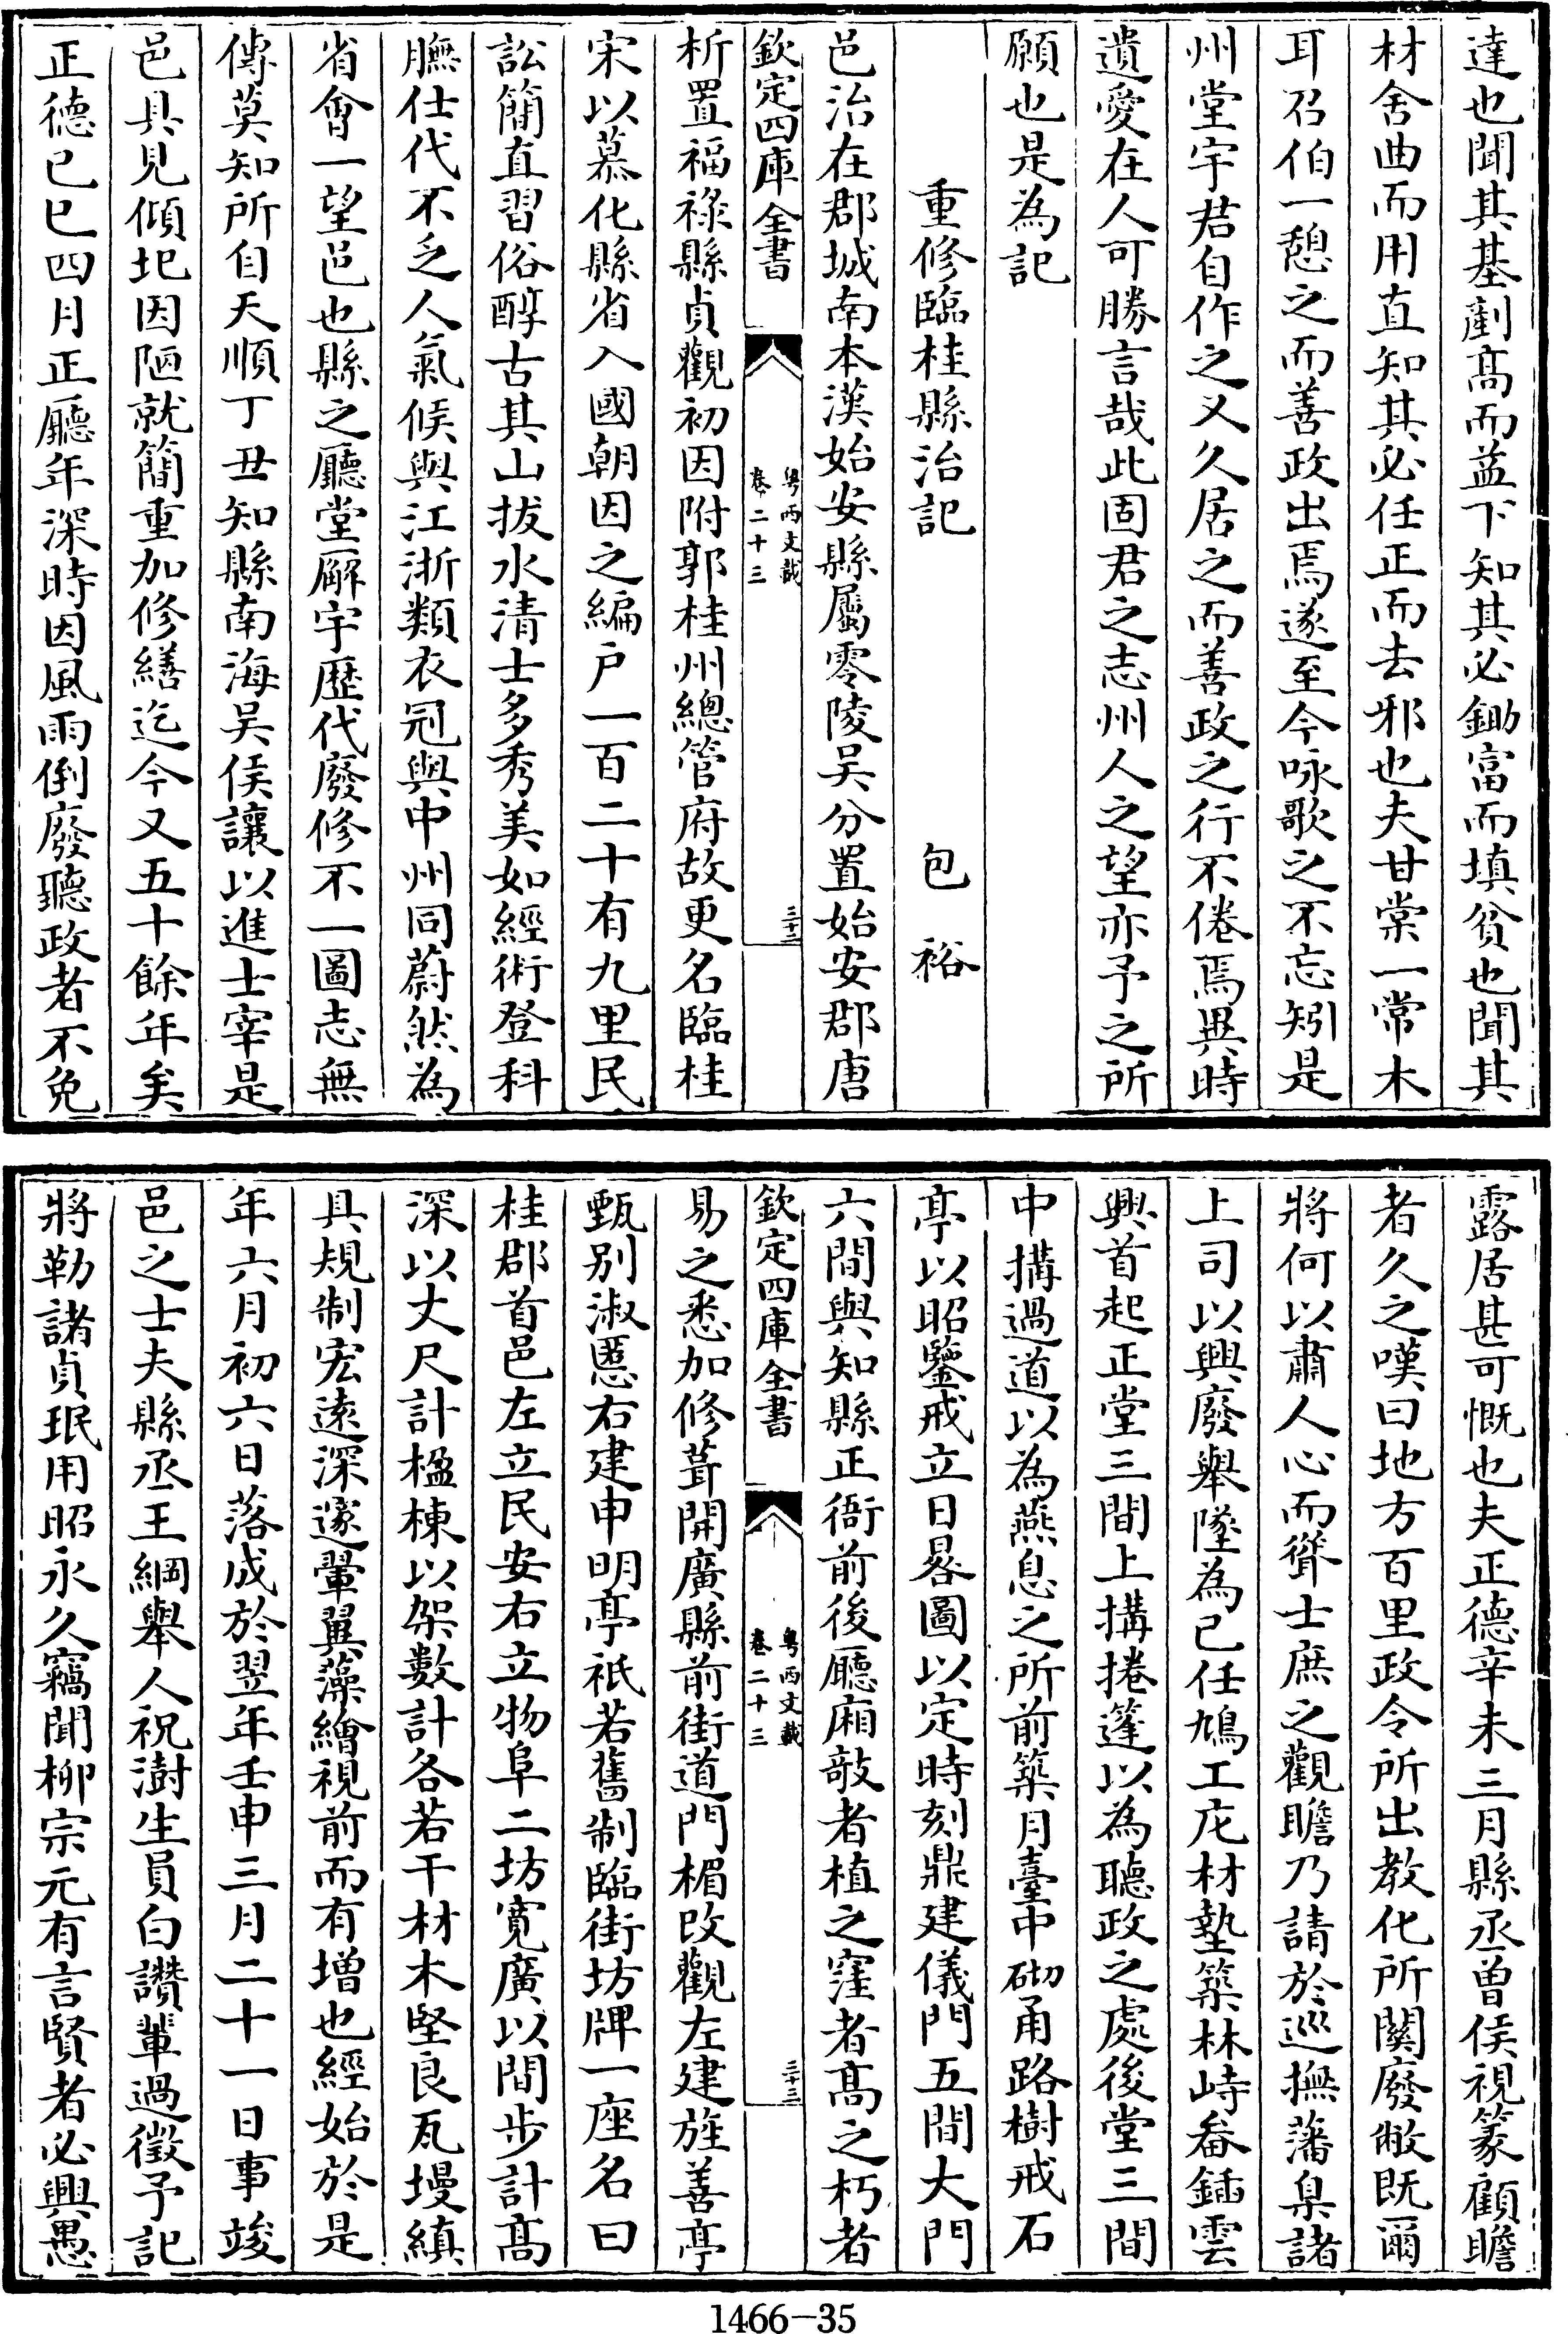 達也聞其基剷髙而益下知其必鋤富而填貧也聞其
材舍曲而用直知其必任正而去邪也夫甘棠一常木
耳召伯一憩之而善政出焉遂至今咏歌之不忘矧是
州堂宇君自作之又久居之而善政之行不倦焉異時
遺愛在人可勝言哉此固君之志州人之望亦予之所
願也是為記
重修臨桂縣治記 包裕
邑治在郡城南本漢始安縣屬零陵吴分置始安郡唐
欽定四庫全書 粤西文載 卷二十三 三十二
析置福禄縣貞觀初因附郭桂州總管府故更名臨桂
宋以慕化縣省入國朝因之編户一百二十有九里民
訟簡直習俗醇古其山拔水清士多秀美如經術登科
膴仕代不乏人氣候與江浙類衣冠與中州同蔚然為
省會一望邑也縣之廳堂廨宇歴代廢修不一圖志無
傳莫知所自天順丁丑知縣南海吴侯讓以進士宰是
邑具見傾圯因陋就簡重加修繕迄今又五十餘年矣
正德己巳四月正廳年深時因風雨倒廢聽政者不免
露居甚可慨也夫正德辛未三月縣丞曽侯視篆顧瞻
者久之嘆曰地方百里政令所出教化所闗廢敝既爾
將何以肅人心而聳士庶之觀瞻乃請於巡撫藩臬諸
上司以興廢舉墜為已任鳩工庀材墊築林峙畚鍤雲
興首起正堂三間上搆捲篷以為聽政之處後堂三間
中搆過道以為燕息之所前築月臺中砌甬路樹戒石
亭以昭鑒戒立日晷圖以定時刻鼎建儀門五間大門
六間與知縣正衙前後廳廂敧者植之窪者髙之朽者
欽定四庫全書 粤西文載 卷二十三 三十三
易之悉加修葺開廣縣前街道門楣改觀左建旌善亭
甄别淑慝右建申明亭祇若舊制臨街坊牌一座名曰
桂郡首邑左立民安右立物阜二坊寛廣以間步計髙
深以丈尺計楹棟以架數計各若干材木堅良瓦墁縝
具規制宏逺深邃翬翼藻繪視前而有増也經始於是
年六月初六日落成於翌年壬申三月二十一日事竣
邑之士夫縣丞王綱舉人祝澍生員白讚輩過徵予記
將勒諸貞珉用昭永久竊聞柳宗元有言賢者必興愚
1466-35